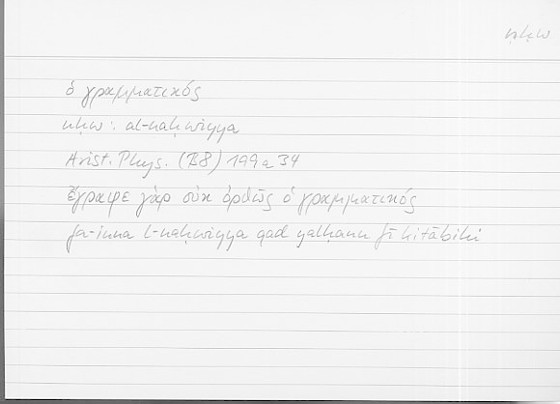 nḥw
ὁ γραμματικός
nḥw: al-naḥwiyya
Arist. Phys. (B8) 199a34
ἔγραψε γὰρ οὐκ ὀρθῶς ὁ γραμματικός
fa-inna l-naḥwiyya qad yalḥanu fī kitābihi